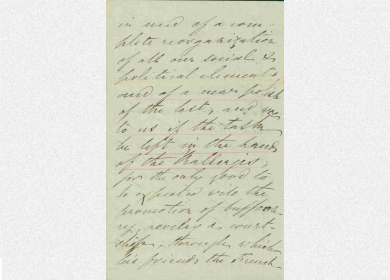 in need of a com-
plete reorganization
of all our social &
political elements,
and of a new polish
of the last, and
to us if the task
be left in the hands
of the
for the only good to
be expected wd be the
promotion of buffoon-
ry, revels & court-
ship, through which
his friends the French